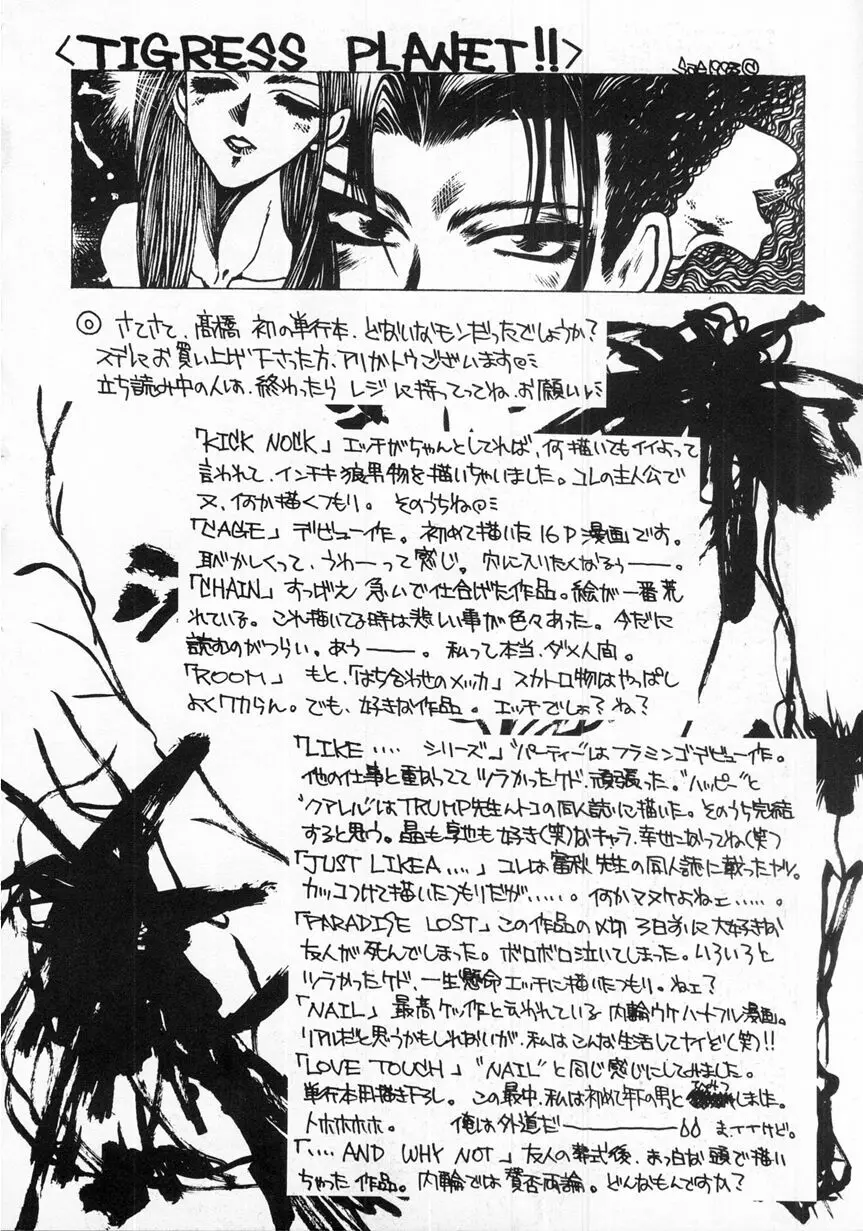 <TIGRESS PLANET!!>
◎ さてさて、高橋 初の単行本、どないなモンだったでしょうか?
スデにお買い上げ下さった方、アリガトウございます◎ミ
立ち読み中の人は、終わったら レジに持ってってね、お願いしミ
「KICK NOCK」エッチがちゃんとしてれば、何描いてもイイよって
言われて、インチキ狼男物を描いちゃいました。コレの主人公で
又、何か描くつもり。そのうちね◎ミ
「CAGE」デビュー作。初めて描いた16P漫画です。
恥かしくって、うわーって感じ。穴に入りたくなるぅ――。
「CHAIN」すっげえ 急いで仕合げた作品。絵が一番荒
れている。これ描いてる時は悲しい事が色々あった。今だに
読むのがつらい。あぅ――。私って本当、ダメ人間。
「ROOM」もと、「はち合わせのメッカ」スカトロ物はやっぱし
よくワカらん。でも、好きな作品。エッチでしょ?ね?
「LIKE‥‥シリーズ」"パーティー"はフラミンゴデビュー作。
他の仕事と重なってて ツラかったケド、頑張った。"ハッピー"と
"クアレル"はTRUMP先生んトコの同人誌に描いた。そのうち完結
すると思う。晶も卓也も好き(笑)なキャラ、幸せになってね(笑)
「JUST LIKE A‥‥」コレは 先生の同人誌に載ったヤツ。
カッコつけて描いたつもりだが‥‥‥。何かマヌケよねェ‥‥‥。
「PARADISE LOST」この作品の〆切 3日前に大好きな
友人が死んでしまった。ボロボロ泣いてしまった。いろいろと
ツラかったケド、一生懸命エッチに描いたつもり。ねェ?
「NAIL」最高ケッ作と云われている 内輪ウケハートフル漫画。
リアルだと思うかもしれないが、私はこんな生活してナイぞ(笑)!!
「LOVE TOUCH」"NAIL"と同じ感じにしてみました。
単行本用描き下ろし。この最中、私は初めて年下の男と しました。
トホホホホ。 俺は外道だ―――――― ま、イイけど。
「‥‥AND WHY NOT」友人の葬式後、まっ白な頭で描い
ちゃった作品。内輪では賛否両論。どんなもんですか?